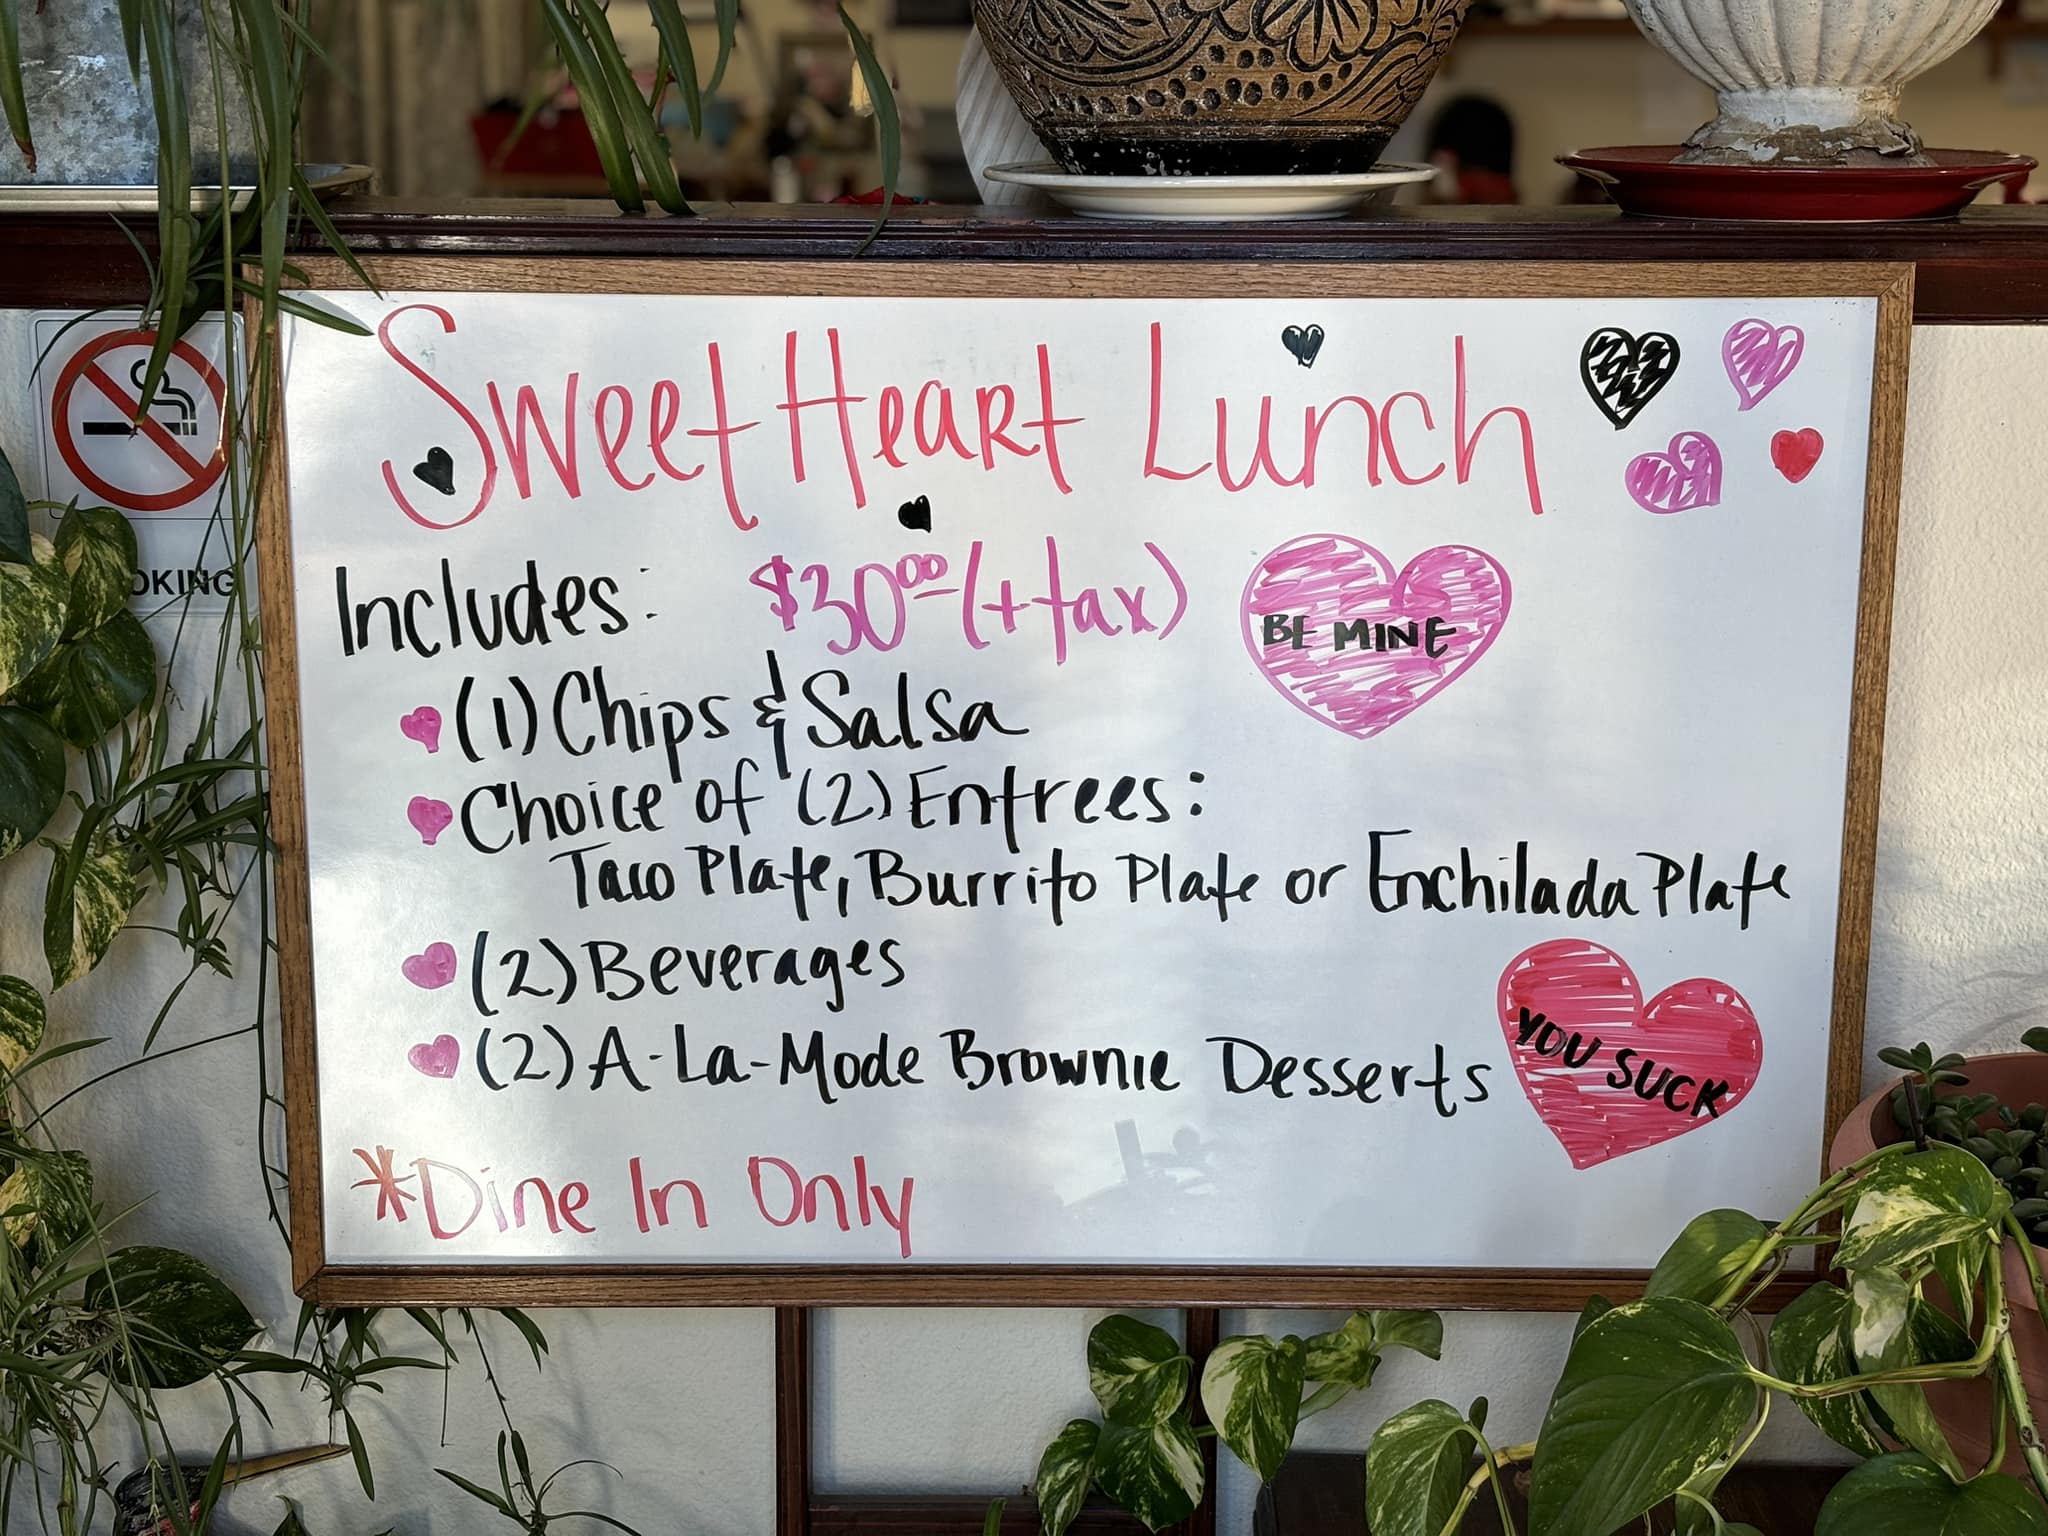 SweetHeart Lunch
Includes: $30.00 (+tax)
BE MINE
(1) Chips & Salsa
Choice of (2) Entrees:
Taco Plate, Burrito Plate or Enchilada Plate
(2) Beverages
(2) A-La-Mode Brownie Desserts
YOU SUCK
*Dine In Only
OKING